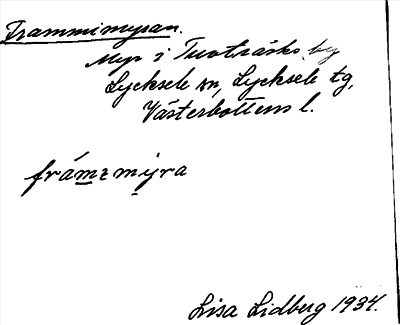 Frammimyran.
Myr i Tuvträsks by
Lycksele sn, Lycksele tg,
Västerbottens l.
frámzmýra
Lisa Lidberg 1934.